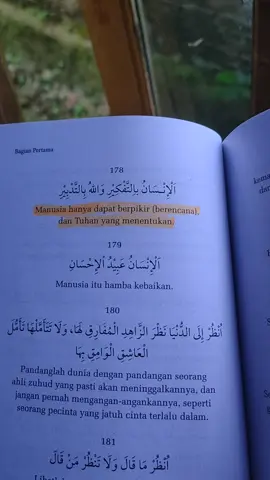 Bagian Pertama
178
اَلْإِنْسَانُ بِالتَّفْكِيْرِ وَاللهُ بِالتَّدْبِيْرِ
Manusia hanya dapat berpikir (berencana),
dan Tuhan yang menentukan.
179
اَلْإِنْسَانُ عَبِيْدُ الْإِحْسَانِ
Manusia itu hamba kebaikan.
180
اُنْظُرْ إِلَى الدُّنْيَا نَظَرَ الزَّاهِدِ الْمُفَارِقِ لَهَا، وَلَا تَتَأَمَّلْهَا تَأَمُّلَ
الْعَاشِقِ الْوَامِقِ بِهَا
Pandanglah dunia dengan pandangan seorang
ahli zuhud yang pasti akan meninggalkannya, dan
jangan pernah mengangan-angankannya, seperti
seorang pecinta yang jatuh cinta terlalu dalam.
181
اُنْظُرْ مَا قَالَ وَلَا تَنْظُرْ مَنْ قَالَ